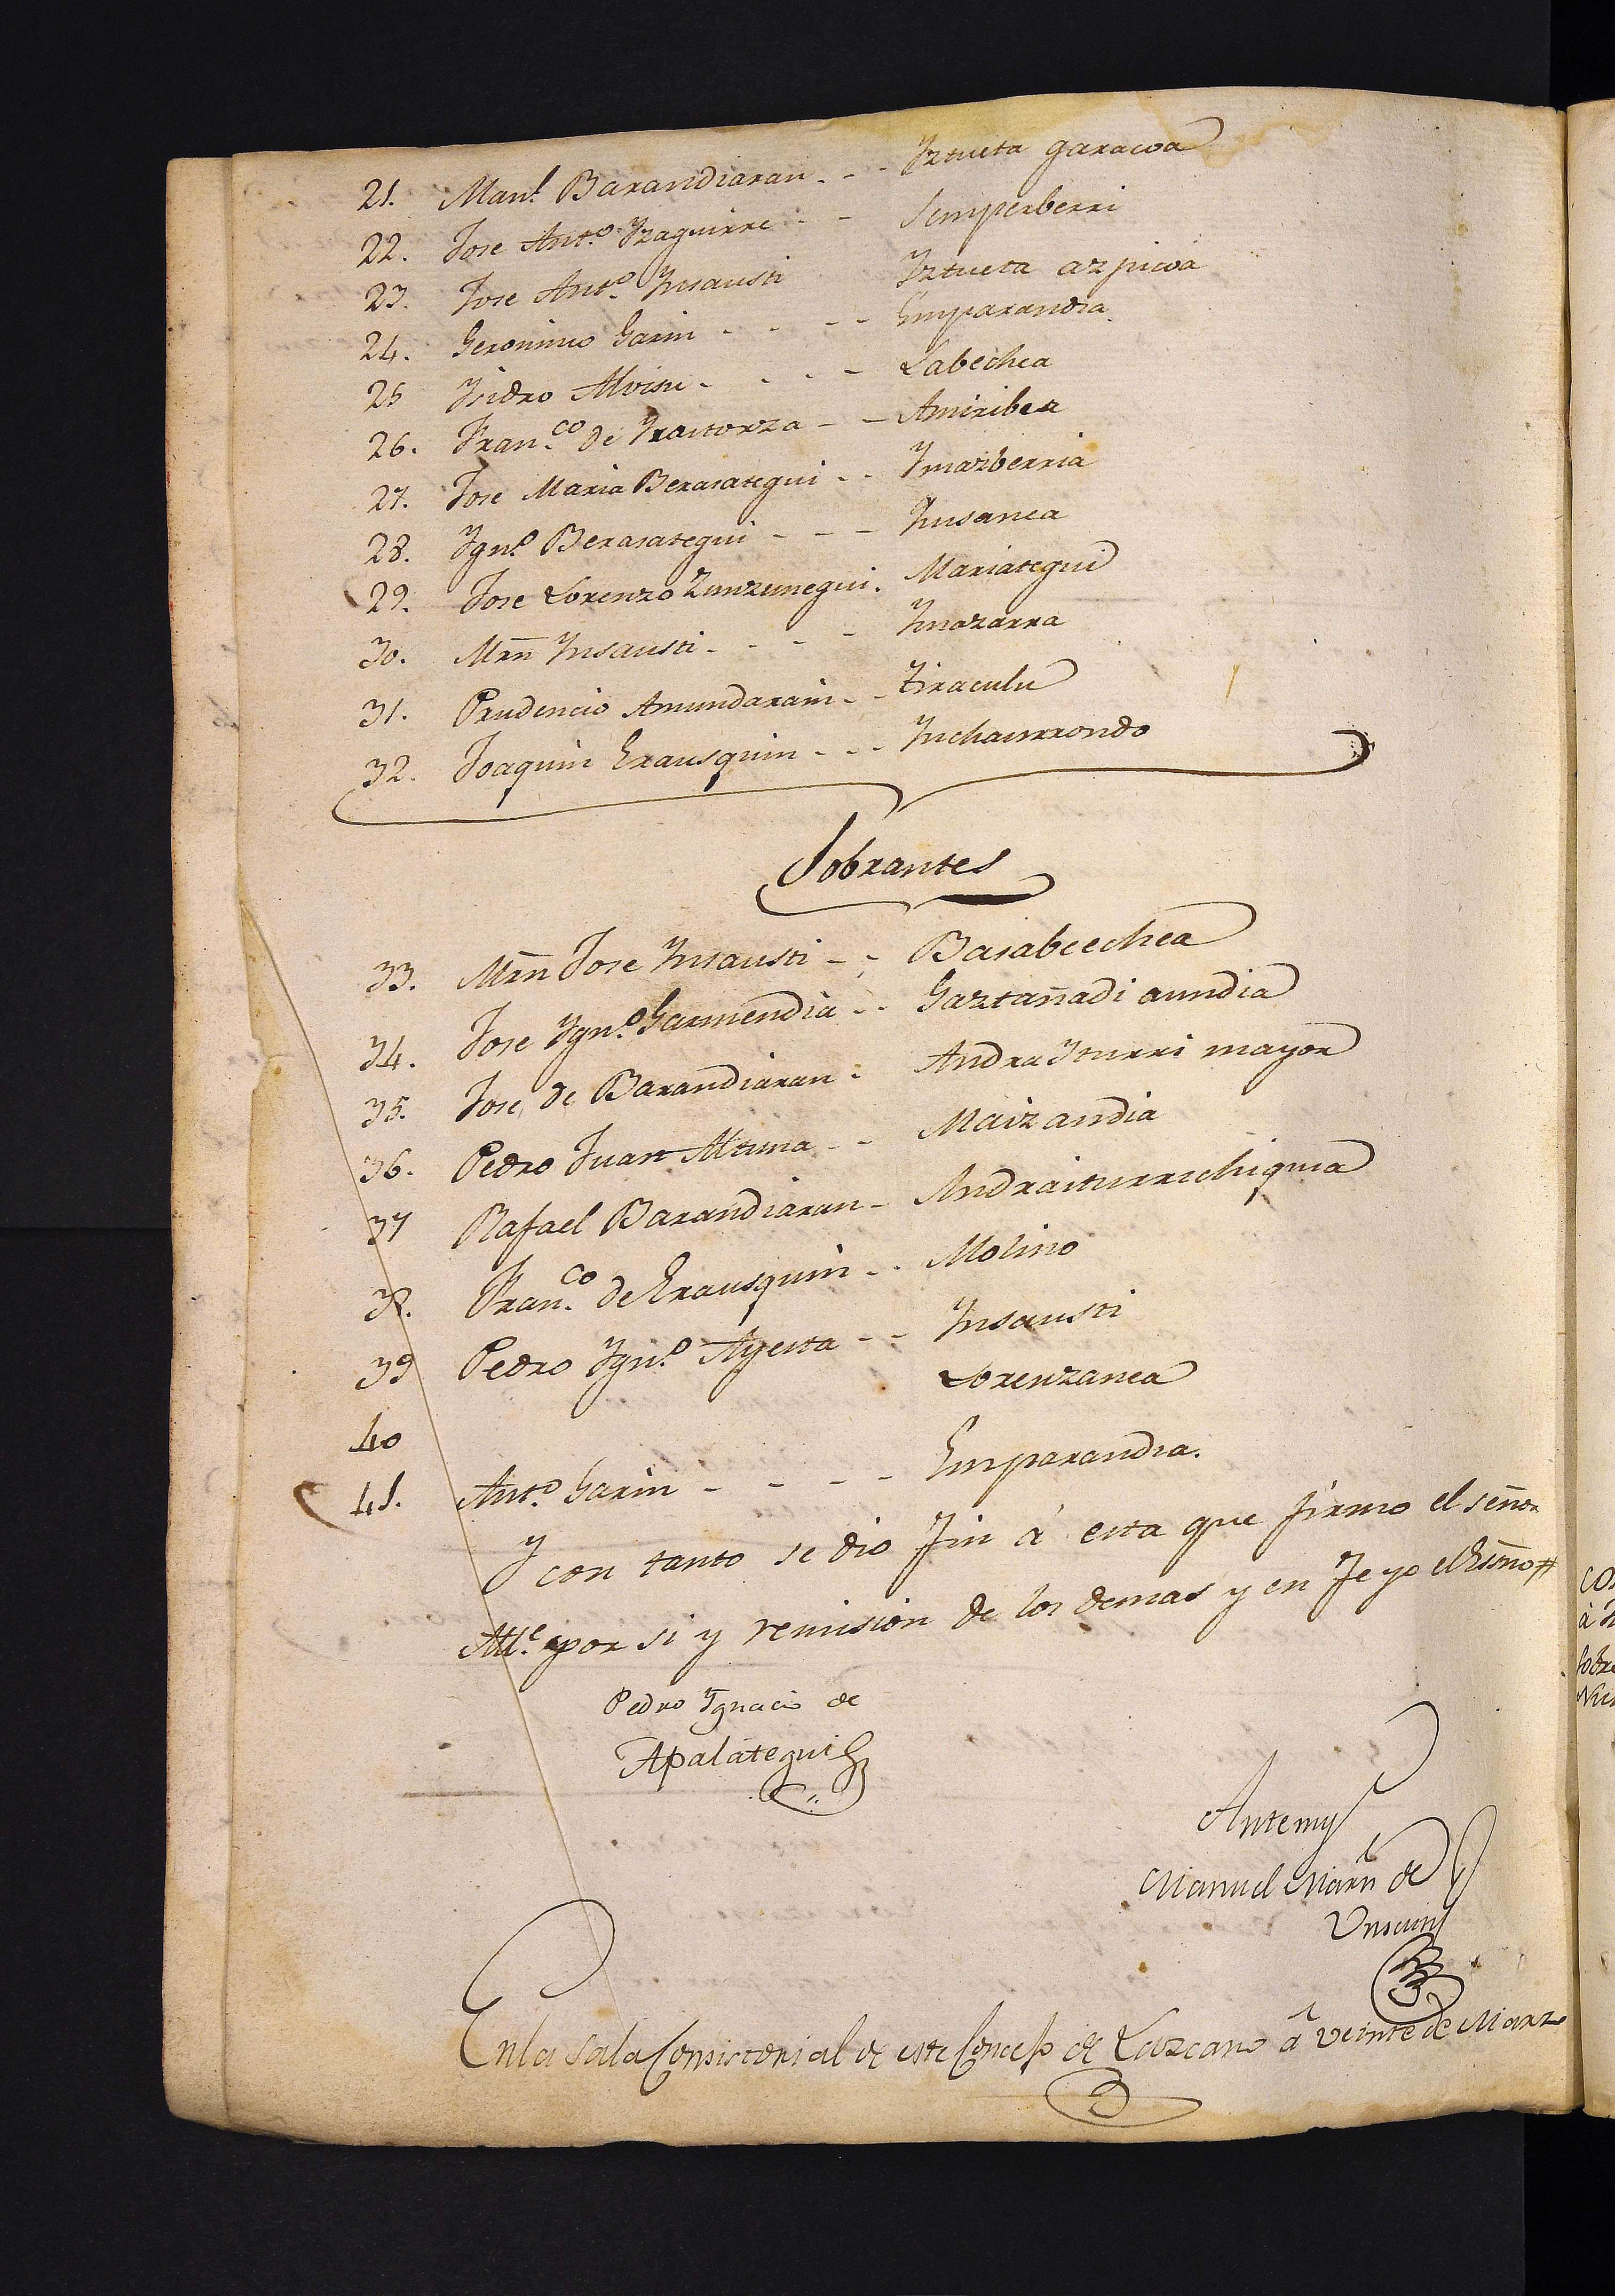 21. Man.l Barandiaran - - - Yztueta garacoa
22. Jose Ant.o Yzaguirre - - Semperberri
23. Jose Ant.o Ynsausti Yztueta azpicoa
24. Geronimo Garin - - - - Emparandia
25 Ysidro Alvisu - - - - Labechea
26. Fran.co de Yraitorza - - Amiribea
27. Jose Maria Berasategui - - Ymazberria
28. Ygn.o Berasategui - - - Ynsanea
29. Jose Lorenzo Zunzunegui. Mariategui
30. Mrn̄ Ynsausti - - - - Ymazarra
31. Prudencio Amundarain - - tiraculu
32. Joaquin Erausquin - - - Ynchaurrondo
Sobrantes
33. Mrn̄ Jose Ynsausti - - Basabeechea
34. Jose Ygn.o Garmendia - - Gaztañadi aundia
35. Jose de Barandiaran - Andra Yturri mayor
36. Pedro Juan Altuna - - Maizandia
37 Rafael Barandiaran - Andraiturrichiquia
38. Fran.co de Erausquin - - Molino
39 Pedro Ygn.o Ayesta - - Ynsausti
40 Lorenzanea
41. Ant.o Garin - - - - Emparandia.
Y con tanto se dio fin á esta que firmo el señor
Alc.e por si y remision de los demas y en fe yo el Essno #
Pedro Ygnacio de
Apalategui
Antemy
Manuel Marn̄ de
Unsain
En la sala Consistorial de este Concejo de Lazcano á veinte de Marzo